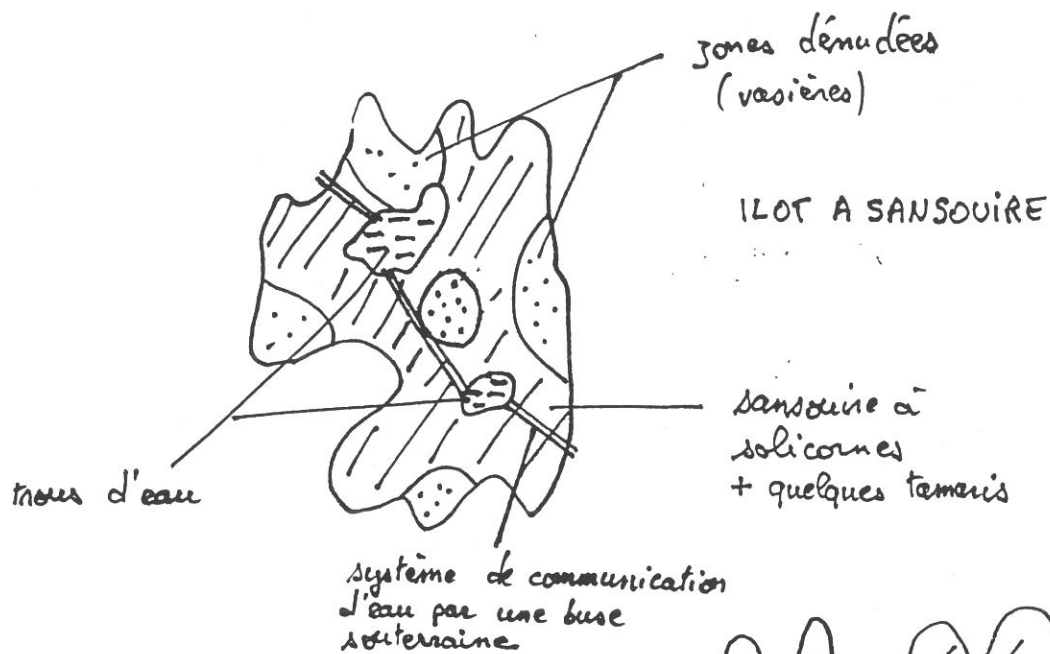 zones dénudées
(vasières)
ILOT A SANSOUIRE
sansouire à
salicornes
+ quelques tamaris
trous d'eau
système de communication
d'eau par une buse
souterraine